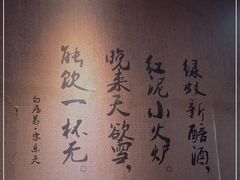 绿蚁新醅酒，
红泥小火炉。
晚来天欲雪，
能饮一杯无。
白居易·问刘十九